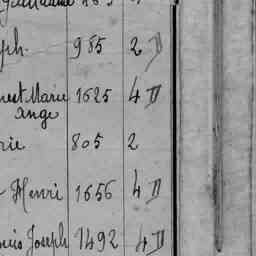 ph. 985 2 D
nest Marie 1625 4 D
Ange
rie 805 2
Henri 1656 4 D
uis Joseph 1492 4 D